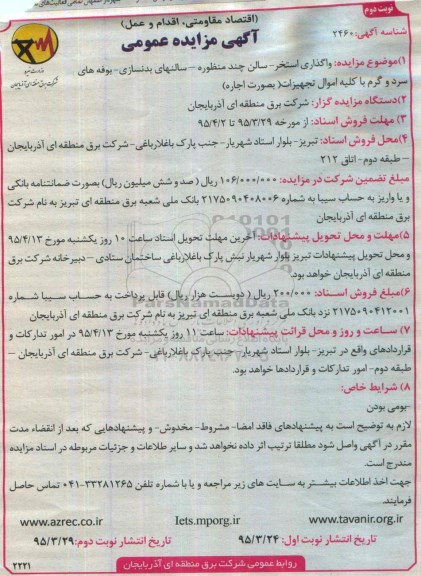 نوبت دوم
(اقتصاد مقاومتی، اقدام و عمل)
شناسه آگهی: ۲۴۶۰
آگهی مزایده عمومی
شرکت برق منطقه ای آذربایجان
۱)موضوع مزایده: واگذاری استخر- سالن چند منظوره – سالنهای بدنسازی- بوفه های
سرد و گرم با کلیه اموال تجهیزات( بصورت اجاره)
۲)دستگاه مزایده گزار: شرکت برق منطقه ای آذربایجان
۳) مهلت فروش اسناد: از مورخه ۹۵/۳/۲۹ تا ۹۵/۴/۲
۴)محل فروش اسناد: تبریز- بلوار استاد شهریار- جنب پارک باغلارباغی- شرکت برق منطقه ای آذربایجان
– طبقه دوم- اتاق ۲۱۲
مبلغ تضمین شرکت در مزایده: ۱۰۶/۰۰۰/۰۰۰ ریال ( صد و شش میلیون ریال) بصورت ضمانتنامه بانکی
و یا واریز به حساب سیبا به شماره ۲۱۷۵۰۹۰۴۰۸۰۰۶ بانک ملی شعبه برق منطقه ای تبریز به نام شرکت
برق منطقه ای آذربایجان
۵)مهلت و محل تحویل پیشنهادات: آخرین مهلت تحویل اسناد ساعت ۱۰ روز یکشنبه مورخ ۹۵/۴/۱۳
و محل تحویل پیشنهادات تبریز بلوار شهریار نبش پارک باغلارباغی ساختمان ستادی – دبیرخانه شرکت برق
منطقه ای آذربایجان خواهد بود.
۶)مبلغ فروش اسناد: ۲۰۰/۰۰۰ ریال ( دویست هزار ریال) قابل پرداخت به حساب سیبا شماره
۲۱۷۵۰۹۰۴۱۲۰۰۱ نزد بانک ملی شعبه برق منطقه ای تبریز به نام شرکت برق منطقه ای آذربایجان
۷) ساعت و روز و محل قرائت پیشنهادات: ساعت ۱۱ روز یکشنبه مورخ ۹۵/۴/۱۳ در امور تدارکات و
قراردادهای واقع در تبریز- بلوار استاد شهریار- جنب پارک باغلارباغی- شرکت برق منطقه ای آذربایجان –
طبقه دوم- امور تدارکات و قراردادها خواهد بود.
۸) شرایط خاص:
-بومی بودن
لازم به توضیح است به پیشنهادهای فاقد امضا- مشروط- مخدوش- و پیشنهادهایی که بعد از انقضاء مدت
مقرر در آگهی واصل شود مطلقا ترتیب اثر داده نخواهد شد و سایر طلاعات و جزئیات مربوطه در اسناد مزایده
مندرج است.
جهت اخذ اطلاعات بیشتر به سایت های زیر مراجعه و یا با شماره تلفن ۳۳۲۸۱۲۶۵-۰۴۱ تماس حاصل
فرمایند.
www.tavanir.org.ir Iets.mporg.ir www.azrec.co.ir
تاریخ انتشار نوبت اول: ۹۵/۳/۲۴ تاریخ انتشار نوبت دوم: ۹۵/۳/۲۹
روابط عمومی شرکت برق منطقه ای آذربایجان
۲۲۲۱
ParsNamadData